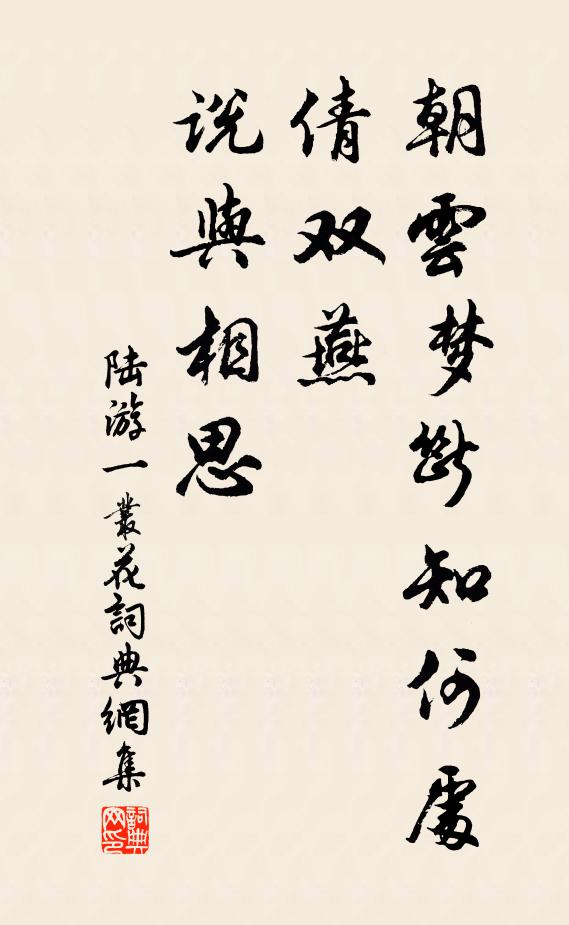 朝雲梦斷知何處
倩双燕
説與相思
陆游一叢花詞典網集
詞典
网印